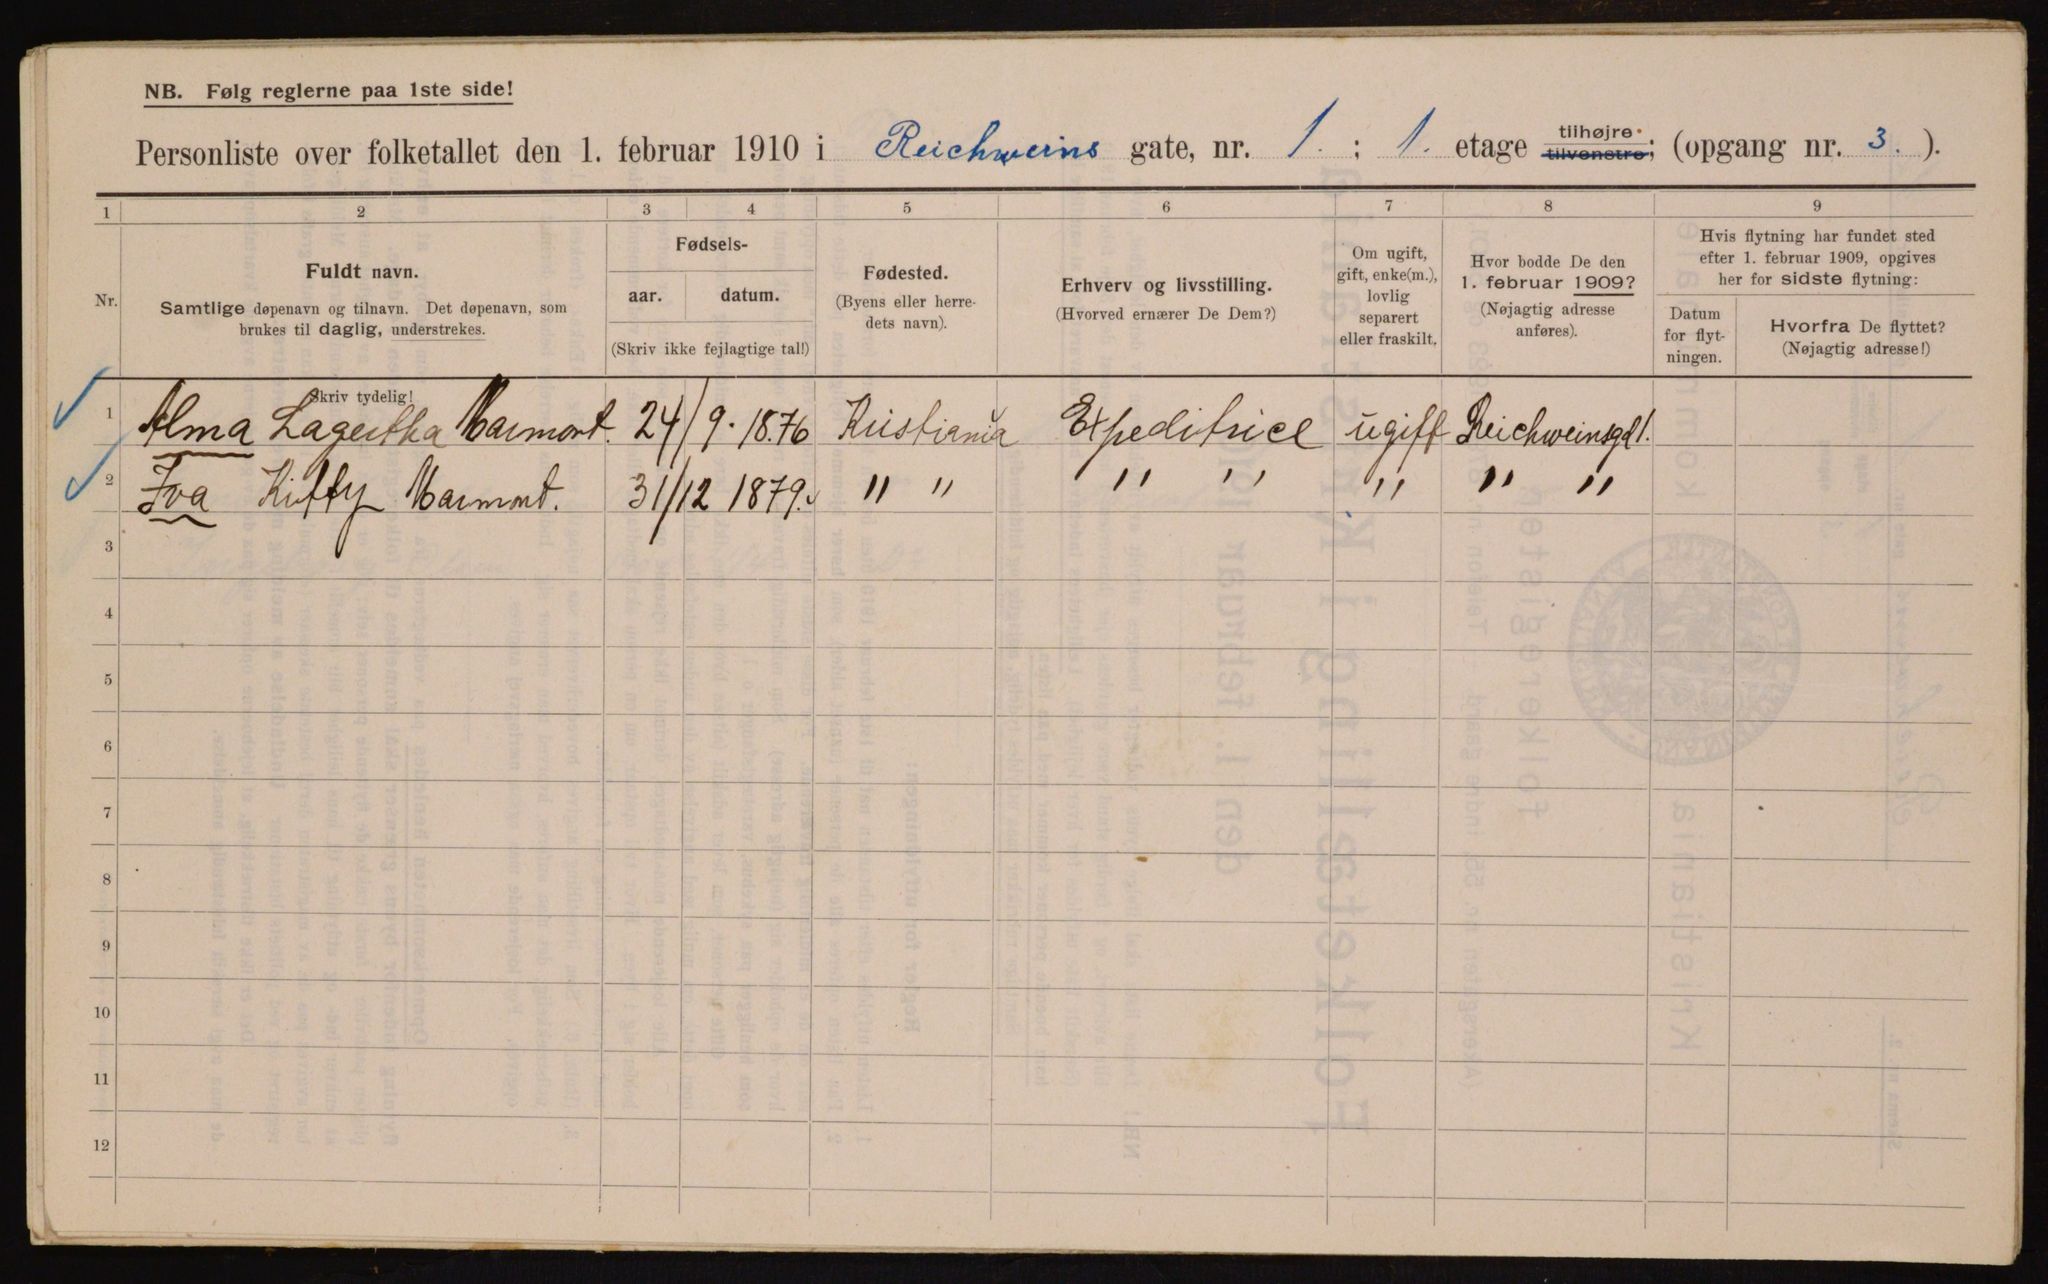 NB. Følg reglerne paa 1ste side!
Personliste over folketallet den 1. februar 1910 i Reichweins gate, nr. 1. ; 1. etage tilhøjre tilvenstre; (opgang nr. 3. ).
1 2 3 4 5 6 7 8 9
Nr.
Fuldt navn.
Samtlige døpenavn og tilnavn. Det døpenavn, som
brukes til daglig, understrekes.
Skriv tydelig!
Fødsels-
aar. datum.
(Skriv ikke fejlagtige tal!)
Fødested.
(Byens eller herre-
dets navn).
Erhverv og livsstilling.
(Hvorved ernærer De Dem?)
Om ugift,
gift, enke(m.),
lovlig
separert
eller fraskilt.
Hvor bodde De den
1. februar 1909?
(Nøjagtig adresse
anføres).
Hvis flytning har fundet sted
efter 1. februar 1909, opgives
her for sidste flytning:
Datum
for flyt-
ningen.
Hvorfra De flyttet?
(Nøjagtig adresse!)
1 Alma Lagertha Marmont. 24/9. 1876 Kristiania Expeditrice ugift Reichweinsgd 1.
2 Iva Kitty Marmont. 31/12 1879. " " " " " " "
3
4
5
6
7
8
9
10
11
12